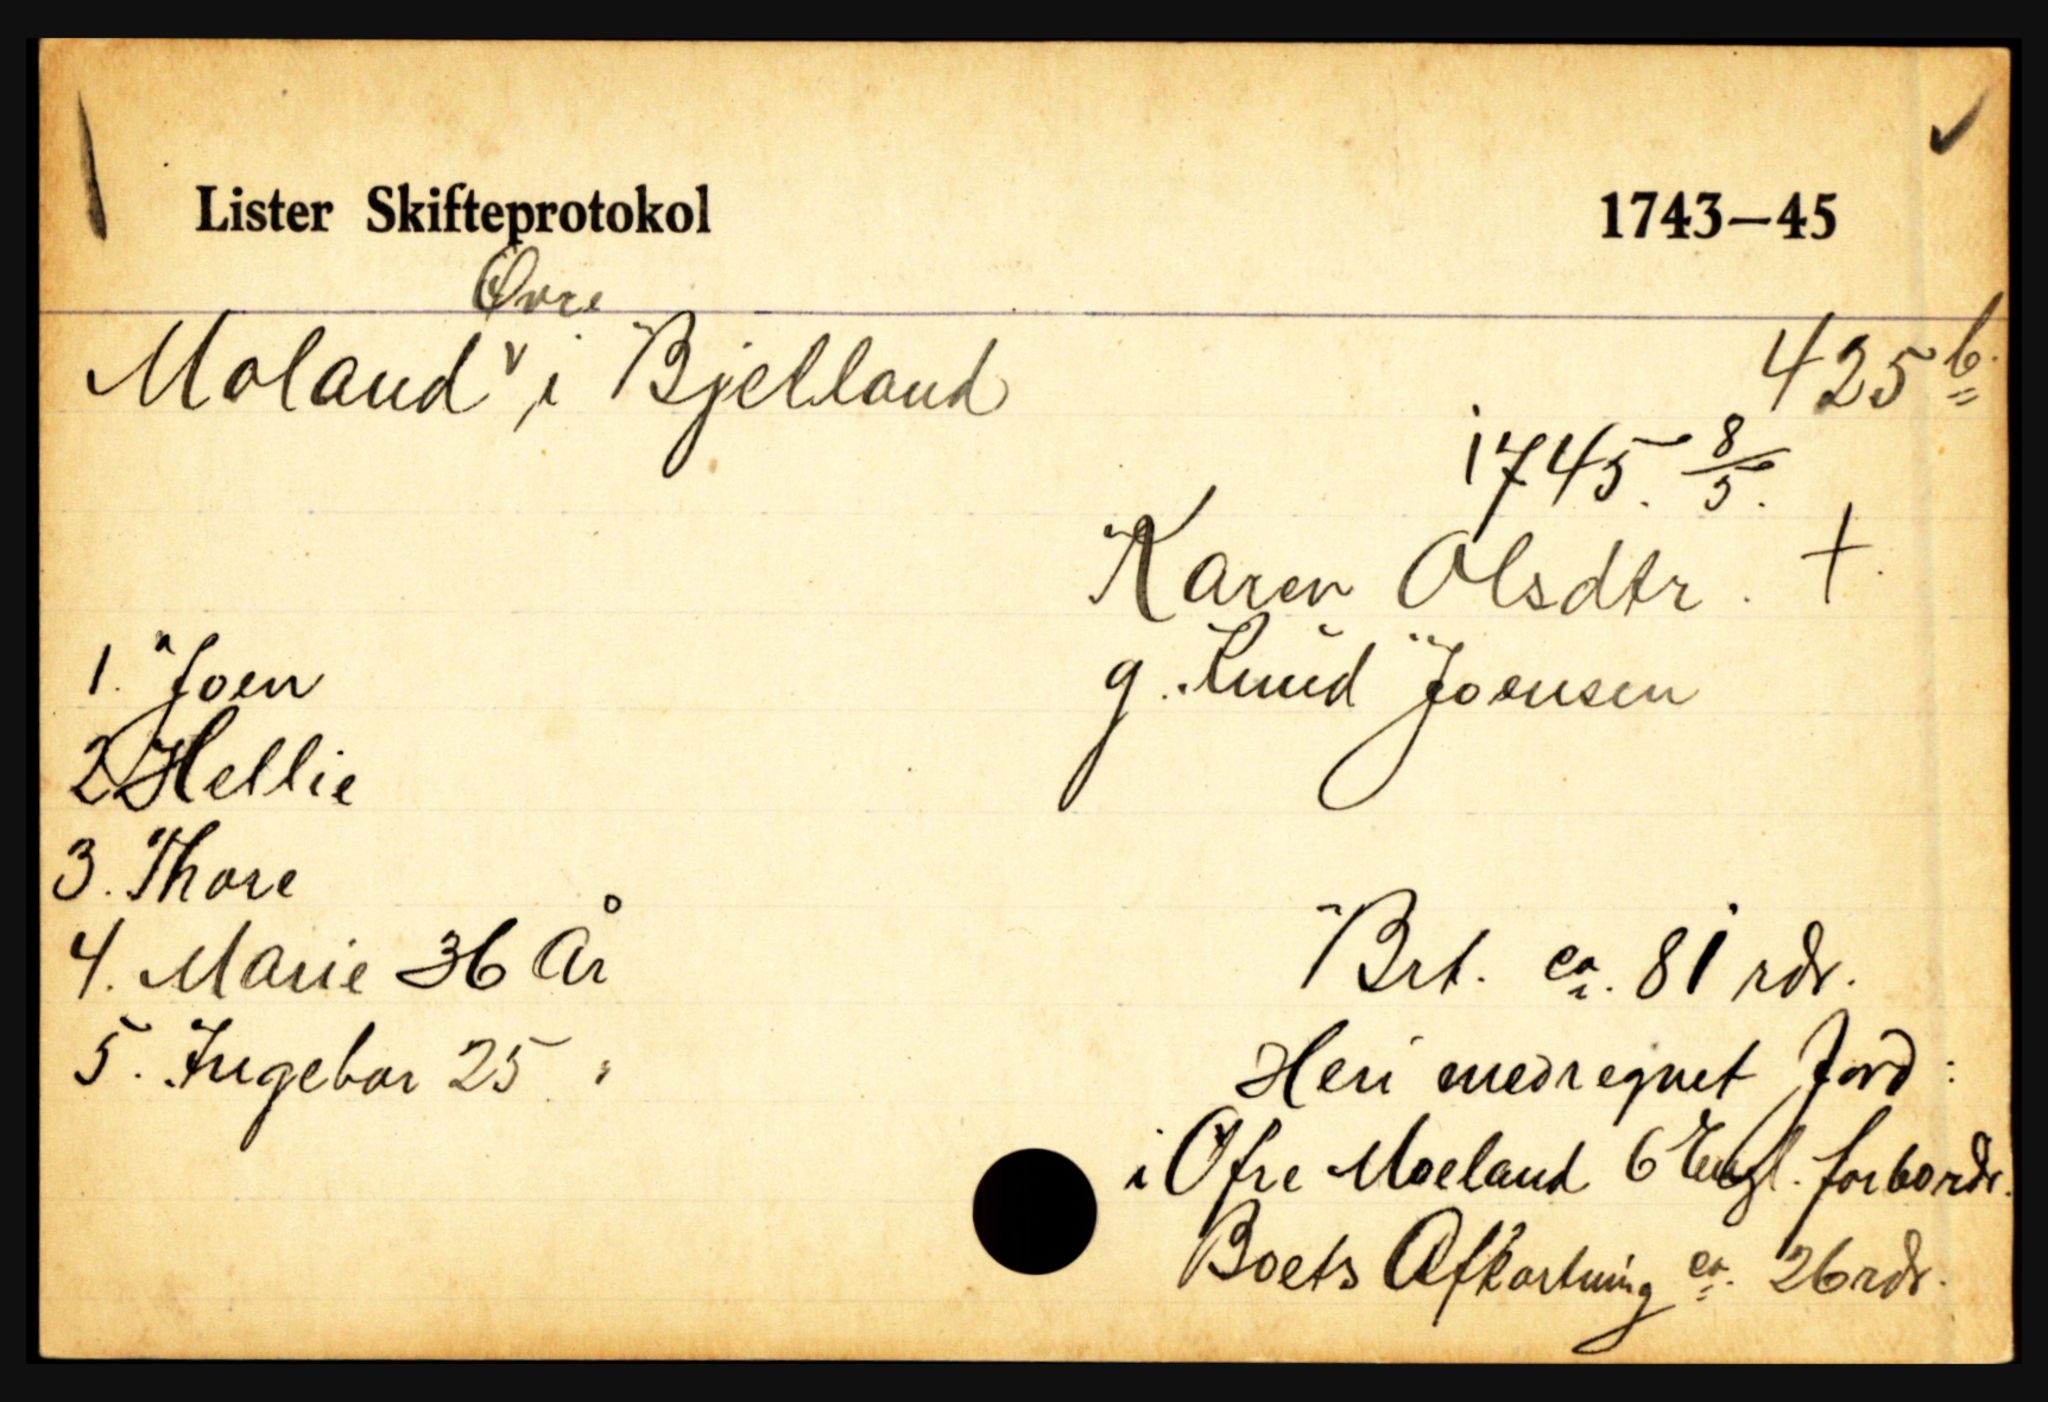 Lister Skifteprotokol 1743—45
Øvre
Moland ᵛ, i Bjelland 425 b.
1745. 8/5.
Karen Olsdtr. †.
1. Joen g. Knud Joensen
2 Hellie
3. Thore
4. Marie 36 År Brt. ca. 81 rdr.
5. Ingebor 25 " Heri medregnet Jord:
i Øfre Moeland 6 Engl. for 60 rdr.
Boets Afkortning ca. 26 rdr.